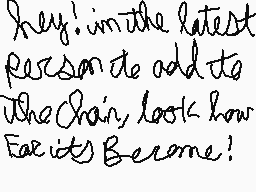 hey! im the latest
person to add to
the chain, look how
Far its Become!